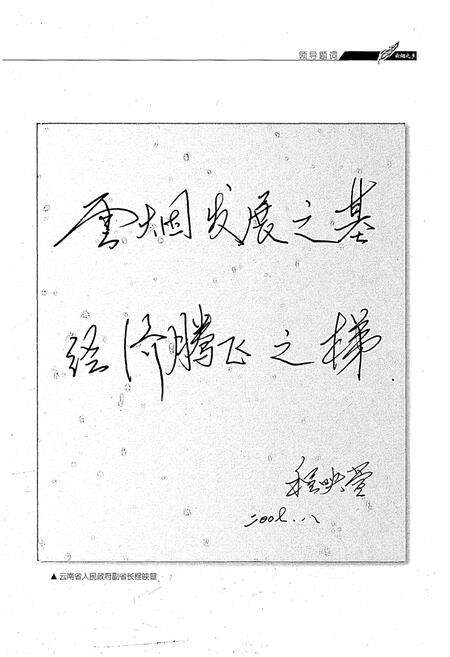 领导题词
云烟之乡
雲烟发展之基
经济腾飞之梯
程映萱
二〇〇七.八
▲ 云南省人民政府副省长程映萱